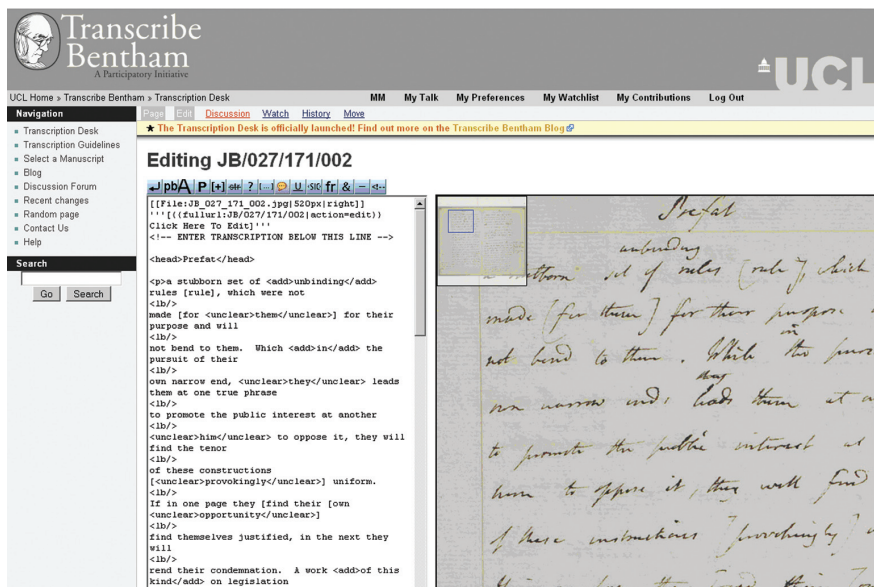 Transcribe
Bentham
A Participatory Initiative
UCL
UCL Home » Transcribe Bentham » Transcription Desk
MM My Talk My Preferences My Watchlist My Contributions Log Out
Navigation
Transcription Desk
Transcription Guidelines
Select a Manuscript
Blog
Discussion Forum
Recent changes
Random page
Contact Us
Help
Search
Go Search
Page Edit Discussion Watch History Move
★ The Transcription Desk is officially launched! Find out more on the Transcribe Bentham Blog
Editing JB/027/171/002
pb A P [+] str ? [...] U SIC fr & –
[[File:JB_027_171_002.jpg|520px|right]]
'''[{{fullurl:JB/027/171/002|action=edit}}
Click Here To Edit]'''
<!-- ENTER TRANSCRIPTION BELOW THIS LINE -->
<head>Prefat</head>
<p>a stubborn set of <add>unbinding</add>
rules [rule], which were not
<lb/>
made [for <unclear>them</unclear>] for their
purpose and will
<lb/>
not bend to them. Which <add>in</add> the
pursuit of their
<lb/>
own narrow end, <unclear>they</unclear> leads
them at one true phrase
<lb/>
to promote the public interest at another
<lb/>
<unclear>him</unclear> to oppose it, they will
find the tenor
<lb/>
of these constructions
[<unclear>provokingly</unclear>] uniform.
<lb/>
If in one page they [find their [own
<unclear>opportunity</unclear>]
<lb/>
find themselves justified, in the next they
will
<lb/>
rend their condemnation. A work <add>of this
kind</add> on legislation
Prefat
unbending
a stubborn set of rules [rule], which
made [for them] for their purpose
in
not bend to them. While the
own narrow ends leads them at
to promote the public interest at
to oppose it, they will find
of these instructions [provokingly]